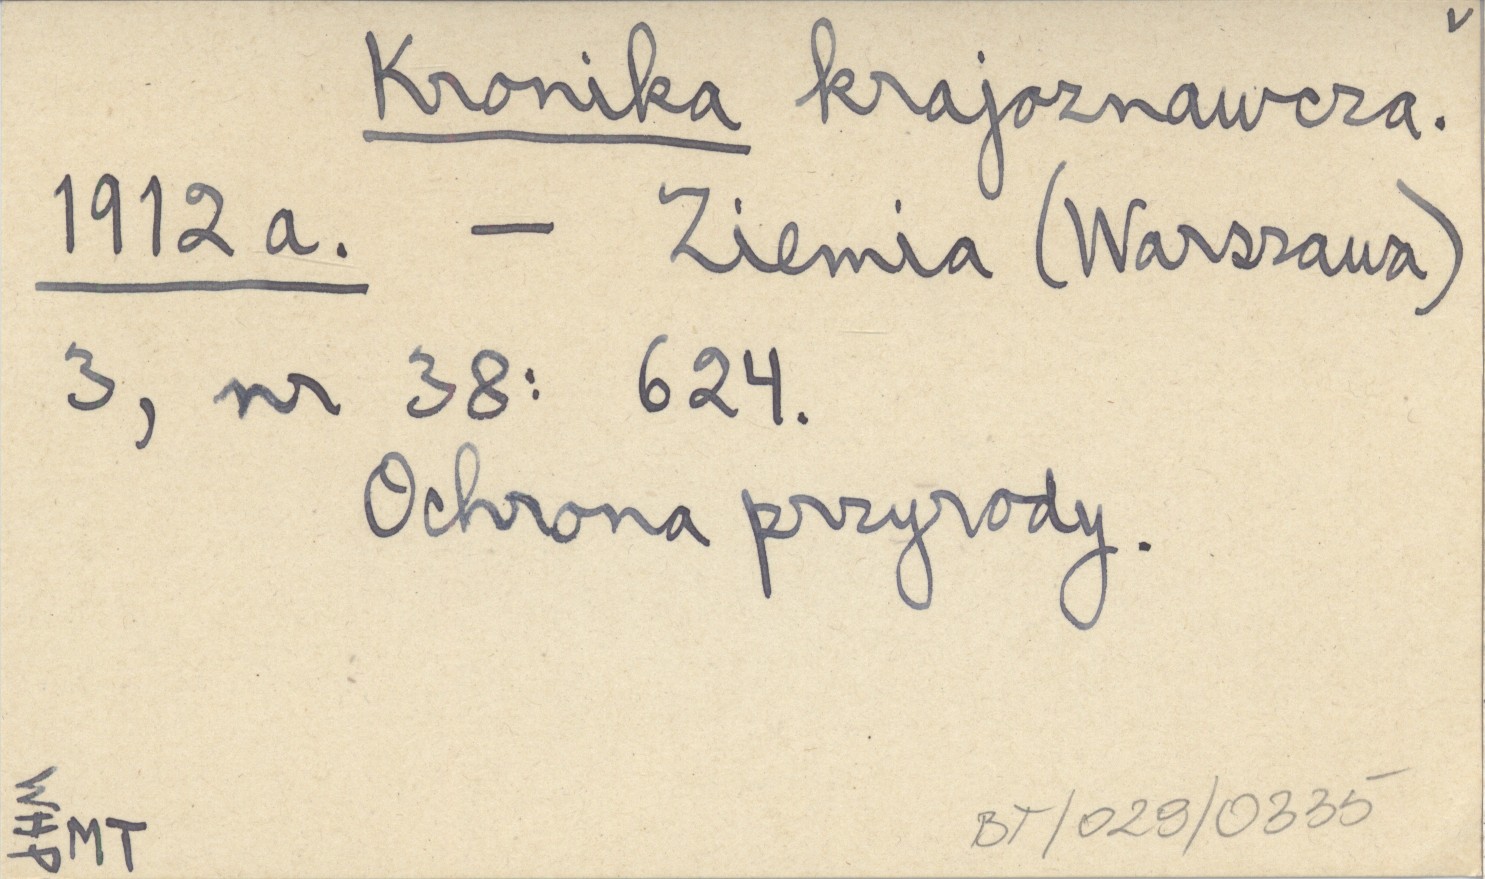 v
Kronika krajoznawcza.
1912 a. — Ziemia (Warszawa)
3, nr 38: 624.
Ochrona przyrody.
WHP
MT
BT/029/0335